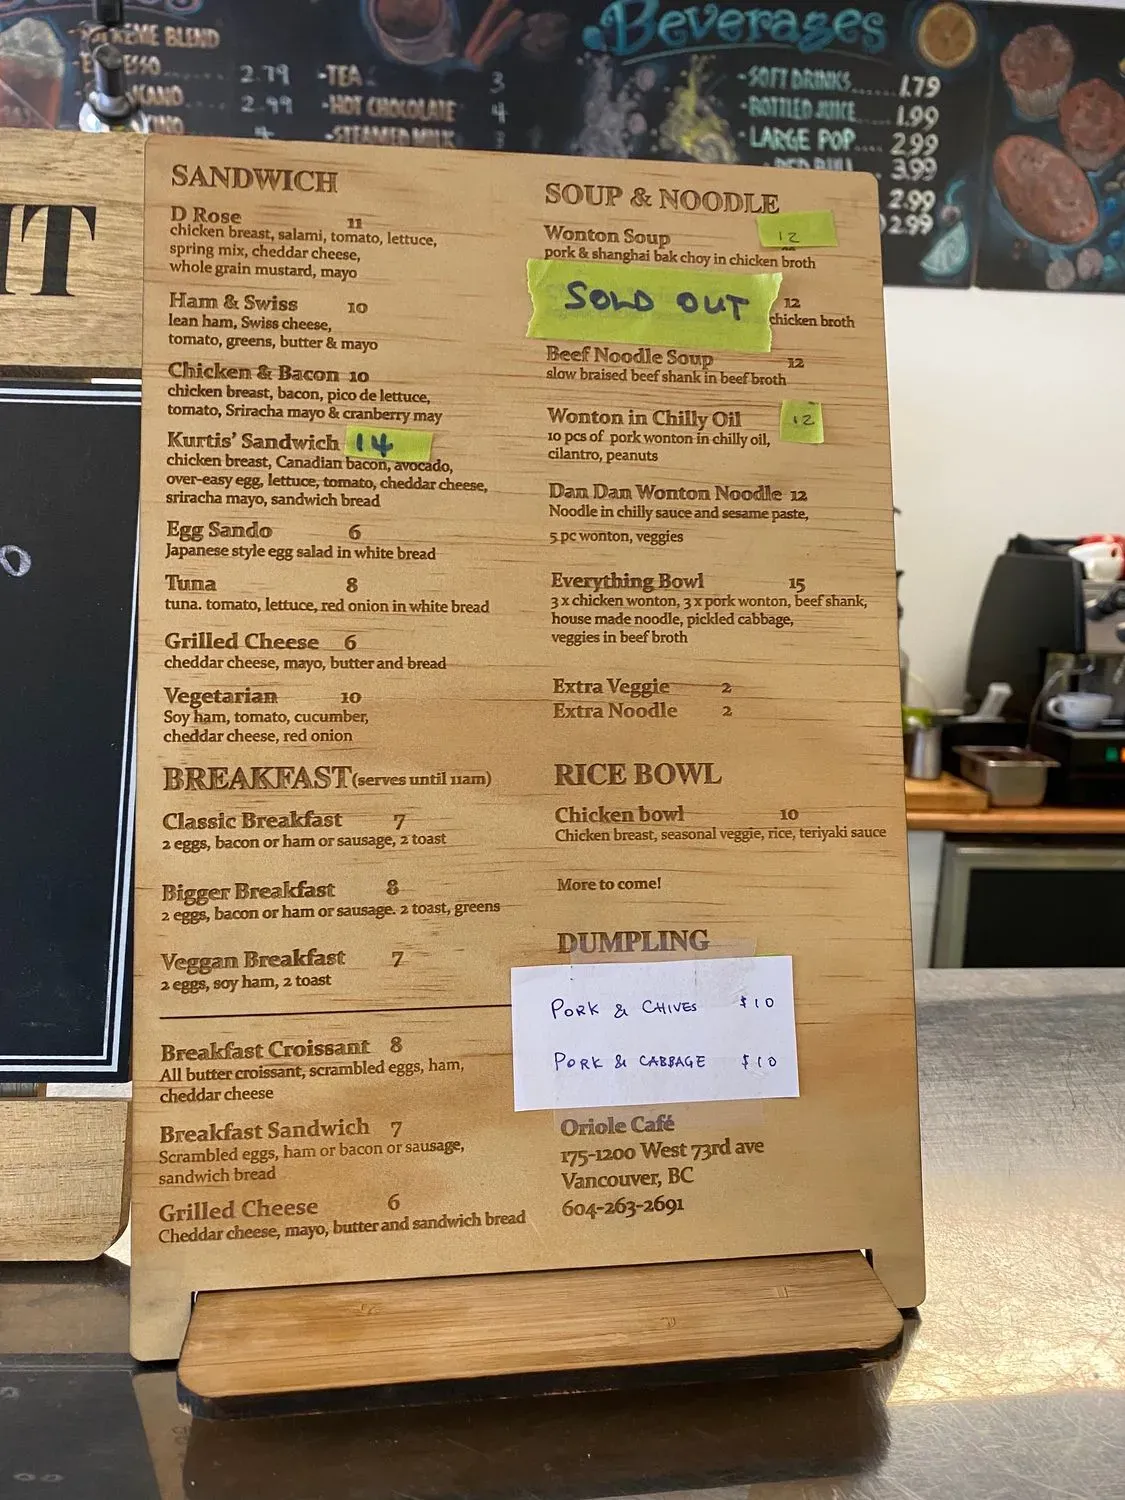 Beverages
ESPRESSO 2.79
2.99
-TEA 3
-HOT CHOCOLATE 4
-STEAMED MILK 3
-SOFT DRINKS 1.79
-BOTTLED JUICE 1.99
-LARGE POP 2.99
RED BULL 3.99
2.99
2.99
SANDWICH
D Rose 11
chicken breast, salami, tomato, lettuce,
spring mix, cheddar cheese,
whole grain mustard, mayo
Ham & Swiss 10
lean ham, Swiss cheese,
tomato, greens, butter & mayo
Chicken & Bacon 10
chicken breast, bacon, pico de lettuce,
tomato, Sriracha mayo & cranberry may
Kurtis' Sandwich 14
chicken breast, Canadian bacon, avocado,
over-easy egg, lettuce, tomato, cheddar cheese,
sriracha mayo, sandwich bread
Egg Sando 6
Japanese style egg salad in white bread
Tuna 8
tuna. tomato, lettuce, red onion in white bread
Grilled Cheese 6
cheddar cheese, mayo, butter and bread
Vegetarian 10
Soy ham, tomato, cucumber,
cheddar cheese, red onion
BREAKFAST (serves until 11am)
Classic Breakfast 7
2 eggs, bacon or ham or sausage, 2 toast
Bigger Breakfast 8
2 eggs, bacon or ham or sausage. 2 toast, greens
Veggan Breakfast 7
2 eggs, soy ham, 2 toast
Breakfast Croissant 8
All butter croissant, scrambled eggs, ham,
cheddar cheese
Breakfast Sandwich 7
Scrambled eggs, ham or bacon or sausage,
sandwich bread
Grilled Cheese 6
Cheddar cheese, mayo, butter and sandwich bread
SOUP & NOODLE
Wonton Soup 12
pork & shanghai bak choy in chicken broth
SOLD OUT 12
chicken broth
Beef Noodle Soup 12
slow braised beef shank in beef broth
Wonton in Chilly Oil 12
10 pcs of pork wonton in chilly oil,
cilantro, peanuts
Dan Dan Wonton Noodle 12
Noodle in chilly sauce and sesame paste,
5 pc wonton, veggies
Everything Bowl 15
3 x chicken wonton, 3 x pork wonton, beef shank,
house made noodle, pickled cabbage,
veggies in beef broth
Extra Veggie 2
Extra Noodle 2
RICE BOWL
Chicken bowl 10
Chicken breast, seasonal veggie, rice, teriyaki sauce
More to come!
DUMPLING
PORK & CHIVES $10
PORK & CABBAGE $10
Oriole Café
175-1200 West 73rd ave
Vancouver, BC
604-263-2691